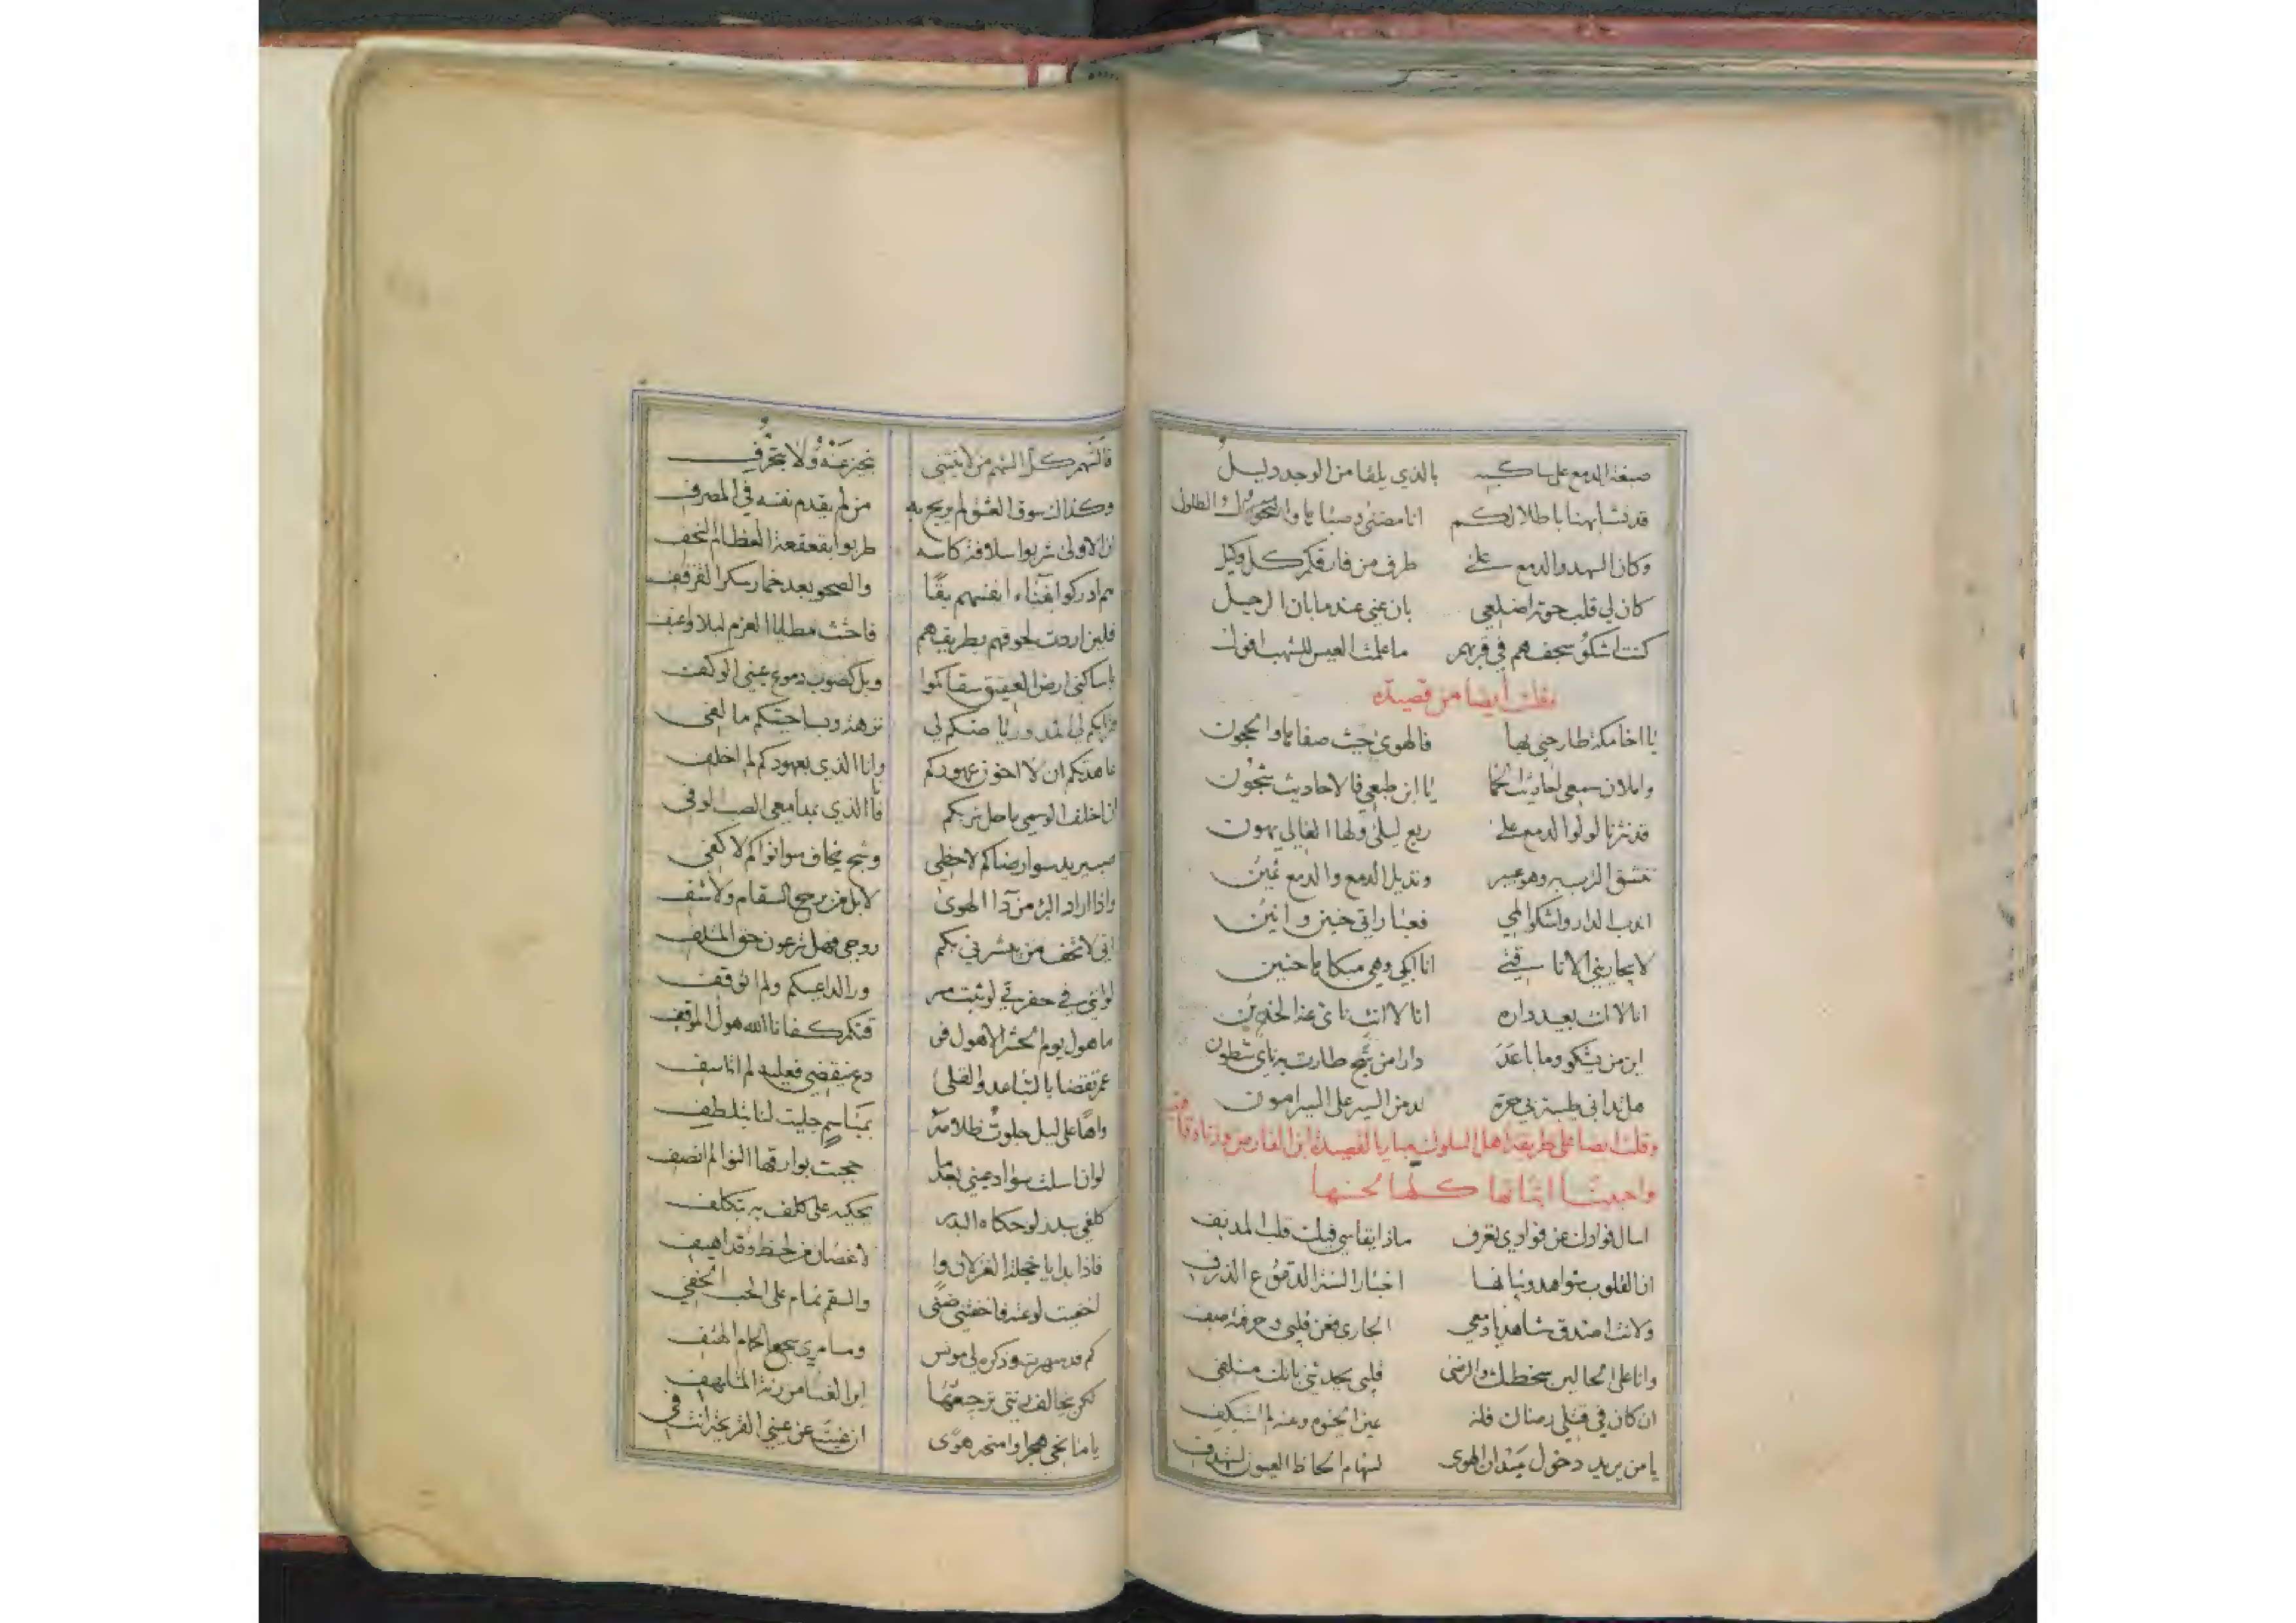 صبغة الدمع على ساكبه بالذي يلقا من الوجد دليل
قد تشابهنا باطلالكم انا مضنى وصبابا وا والطلول
وكان السهد والدمع على طرف من فارقكم كل وكيل
كان لي قلب حوته اضلعي بان عني عندما بان الرحيل
كنت اشكو سجفهم في قربهم ما علمت العيس للشهب افول
وقلت ايضا من قصيدة
يا اخا مكة طارحني بها فالهوى حيث صفاها والحجون
واملان سمعي احاديث الحما يا ابن طبعي فالاحاديث شجون
قد نثرنا لولوا الدمع على ربع ليلى ولها الغالي يهون
ننشق الترب وهو عبير ونذيل الدمع والدمع ثمين
اندب الدار واشكو المي فعبا راتي حنين وانين
لا يجاريني الا ناقتي انا ابكي وهي مبكاها حنين
انا لا انت بعيد داره انا لا انت ناى عنه الخدين
اين من يشكو وما باعده دارا من شج طارت به ناي شطون
هل تداني ظبيتي بي حرة لدمن السير على السير امون
وقلت ايضا على طريقة اهل السلوك مباريا لقصيدة ابن الفارض وزنا وقافية
واجبت ابياتها كلها لحسنها
اسال فوادك عن فوادي تعرف ماذا يقاسي فيك قلب المدنف
ان القلوب شواهد وبيانها اخبار السنة الدموع الذرف
ولانت اصدق شاهد يا دمعي الجاري فعن قلبي وحرقته صف
وانا على الحالين سخطك والرضى قلبي يحدثني بانك متلفي
ان كان في قتلي رضاك فلذ عين الحتوف وعنه لم استنكف
يا من يريد دخول ميدان الهوى لسهام الحاظ العيون استهدف
فالشهم كل الشهم من لا ينثني بنحيز عنه ولا بتحرف
وكذاك سوق العشق لم يربح به من لم يقدم نفسه في المصرف
ان الاولى شربوا سلافة كاسه طربوا بقعقعة العظام النحف
هم ادركوا بفناء انفسهم بقا والصحو بعد خمار سكر القرقف
فلين اردت لحوقهم بطريقهم فاحثث مطايا العزم ليلا واعنف
يا ساكني ارض العقيق سقاكموا وبل كصوب دموع عيني الوكف
عاهدتكم ان لا اخون عهودكم وانا الذي بعهودكم لم اخلف
ان اخلف الوسمي يا حل تربكم فانا الذي بمدامعي الصب الوفي
صب يريد سوا رضاكم لا حظي وشج يخاف سوا نواكم لا كفي
واذا اراد البرء من داء الهوى لا بل من برح السقام ولا شفي
اني لاتحف من يبشرني بكم روحي فهل ترعون حق المتلف
لو انني في حفرتي لوثبت من ورا لداعيكم ولم اتوقف
ما هول يوم الحشر الا هول فرقتكم كفانا الله هول الموقف
عمر تقضا بالتباعد والقلى دع ينقضي فعليه لم اتاسف
واها على ليل جلوت ظلامه بمباسم جليت لنا بتلطف
لو ان اسلت سواد عيني بعد ما حجبت بوارقها النوا لم انصف
كلفي ببدر لو حكاه البدر يحكيه على كلف به بتكلف
فاذا بدا يا خجلة الغزلان وا لاغصان من لحظ وقد اهيف
اخفيت لوعته فاخفتني ضنى والسقم نمام على الحب الخفي
كم قد سهرت وذكره لي مونس ومسامري سجع الحمام الهتف
لكن يخالف رنتي ترجيعها اين الغنا من رنة المتلهف
يا مانحي هجرا وامنحه هوى ان غبت عن عيني القريحة انت في